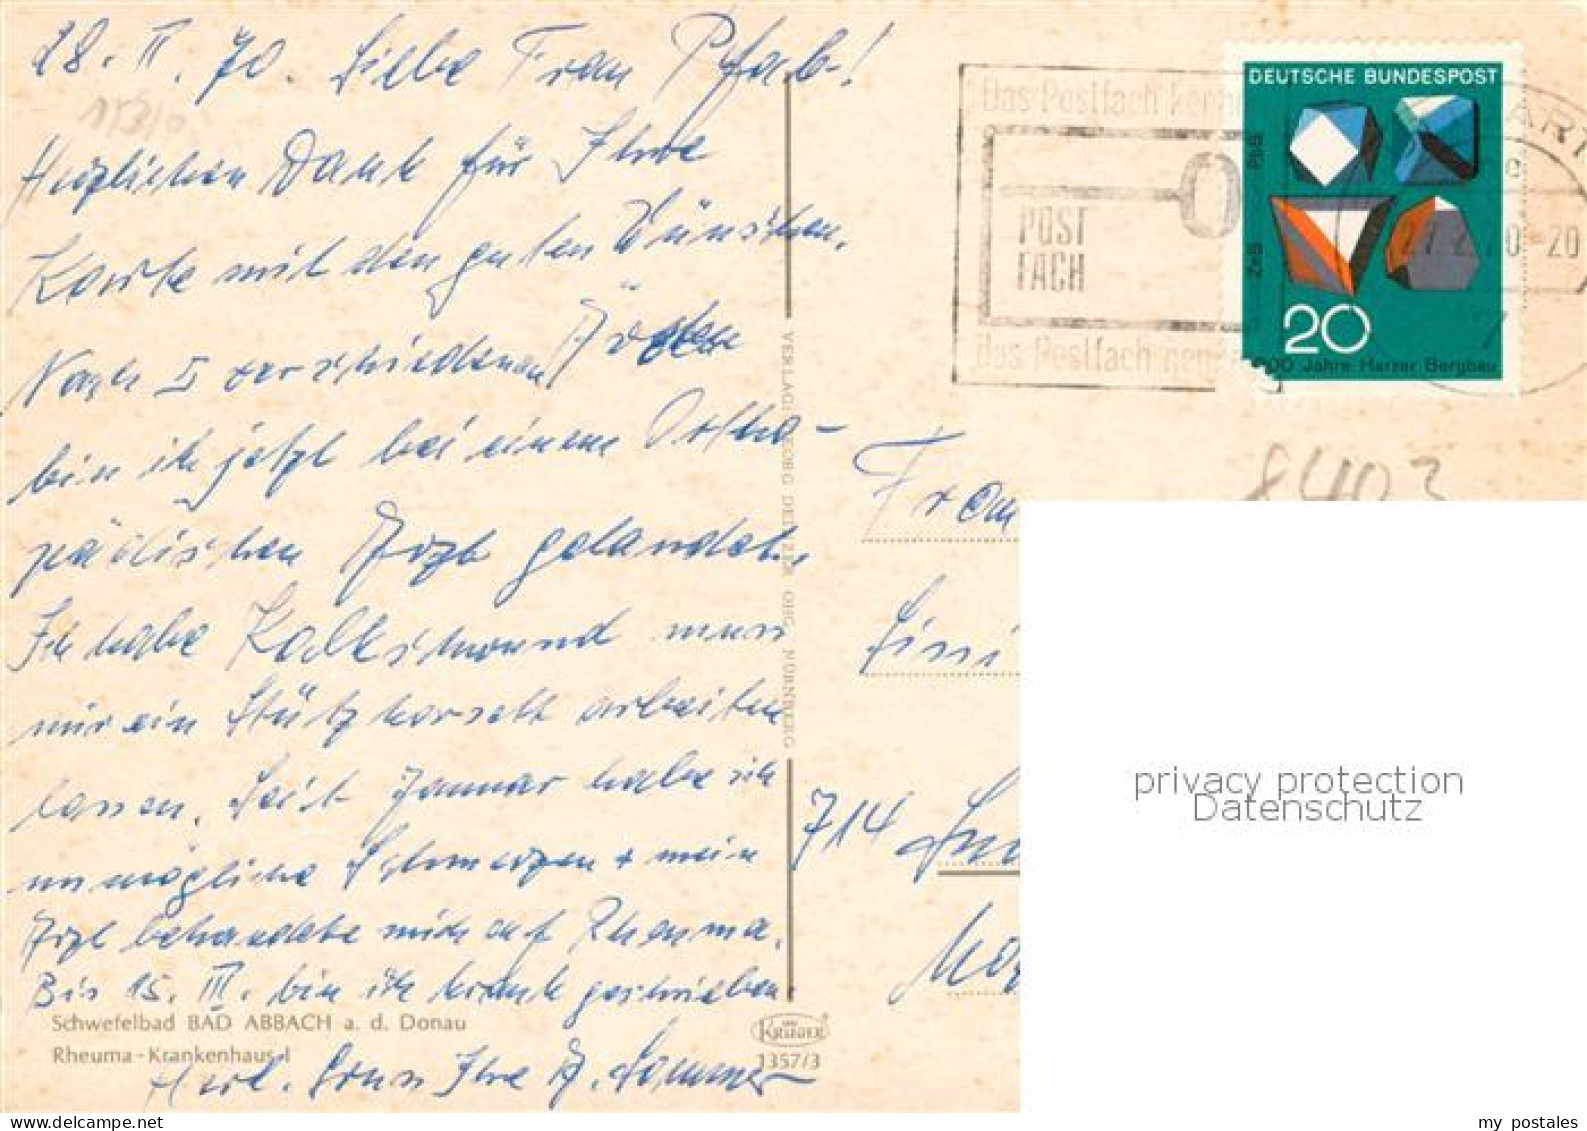 28. II. 70. Liebe Frau Pfab!
Herzlichen Dank für Ihre
Karte mit den guten Wünschen.
Nach 5 verschiedenen Ärzten
bin ich jetzt bei einem Ortho-
pädischen Arzt gelandet.
Ich habe Kalkschwund muss
mir ein Stützkorsett arbeiten
lassen. Seit Januar habe ich
unmögliche Schmerzen + mein
Arzt behandelte mich auf Rheuma.
Bis 15. III. bin ich krank geschrieben.
Schwefelbad BAD ABBACH a. d. Donau
Rheuma-Krankenhaus I
Herzl. Gruss Ihre A. Sommer
KRÜGER
1357/3
VERLAG: GEORG DEINZER OHG, NÜRNBERG
Das Postfach
POST
FACH
das Postfach
DEUTSCHE BUNDESPOST
PbS
ZnS
20
1000 Jahre Harzer Bergbau
27.2.70-20
8403
Frau
714
privacy protection
Datenschutz
www.delcampe.net
my_postales